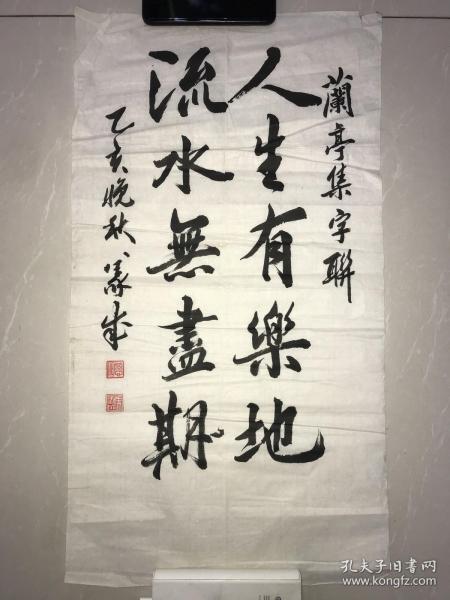 蘭亭集字聯
人生有樂地
流水無盡期
乙亥晚秋
孔夫子旧书网
www.kongfz.com